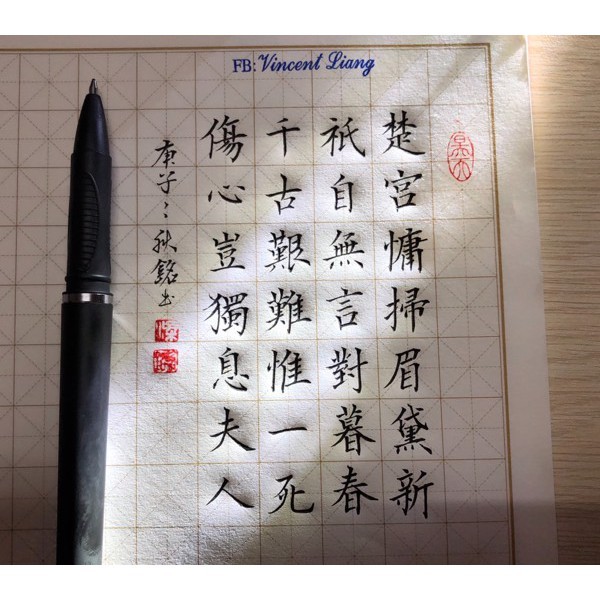 FB: Vincent Liang
楚宮慵掃眉黛新
祇自無言對暮春
千古艱難惟一死
傷心豈獨息夫人
庚子之秋銘书